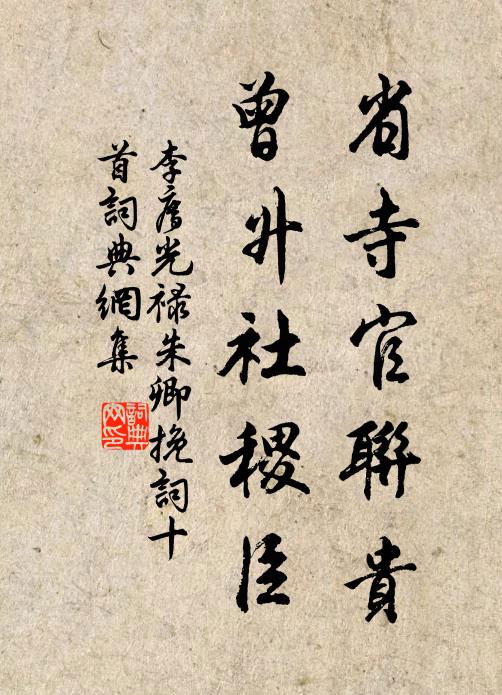 省寺官聯貴
曾升社稷臣
李膺光祿朱卿挽詞十
首詞典網集
詞典
网印